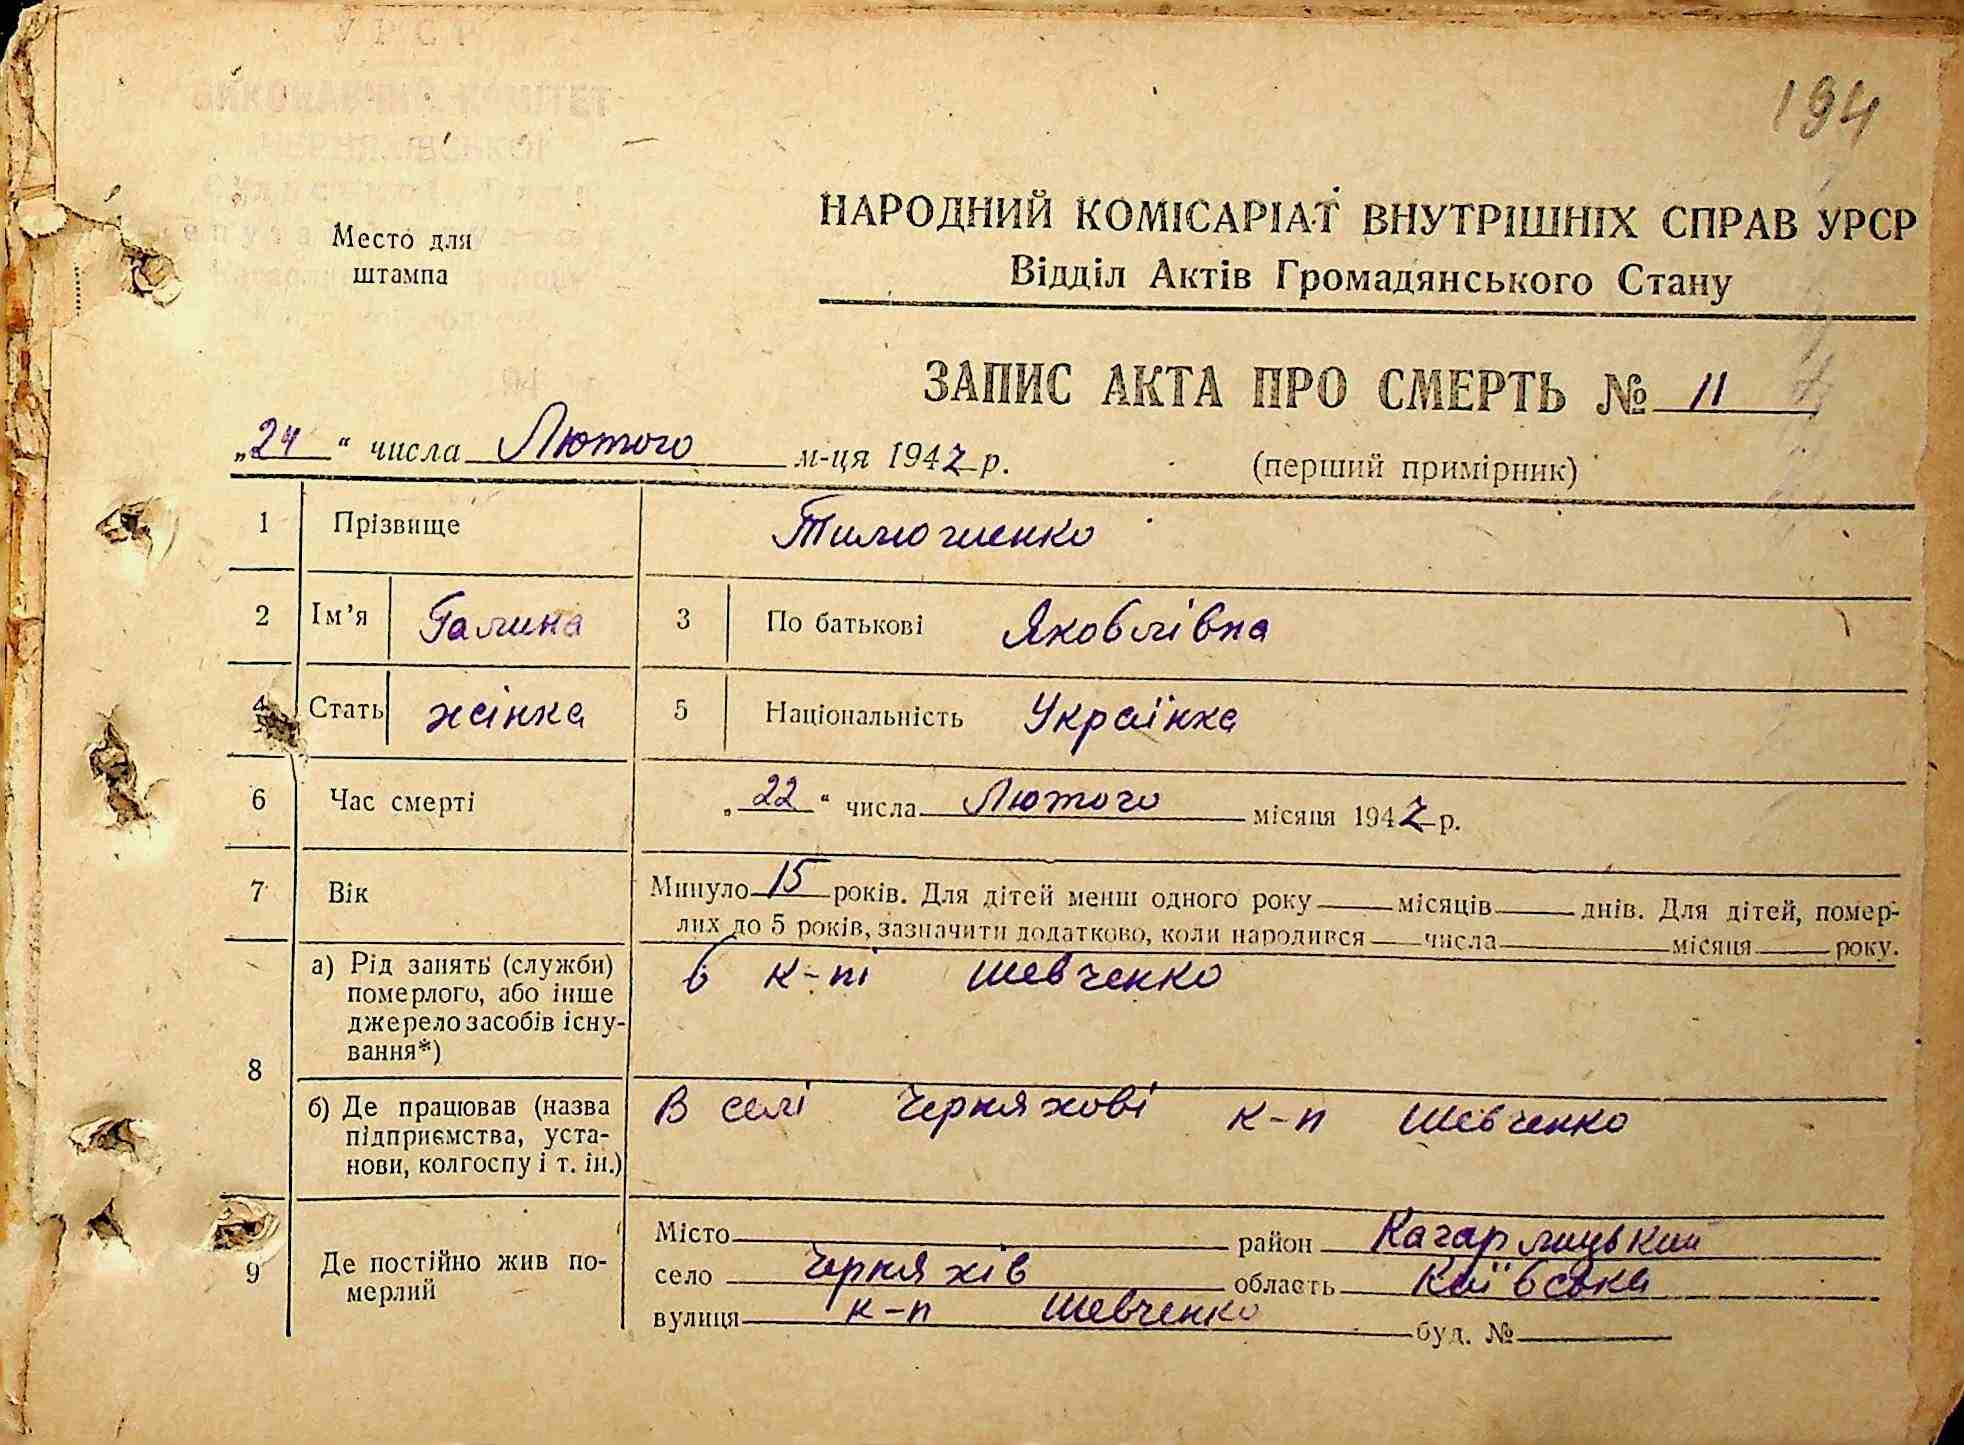 УРСР
ВИКОНАВЧИЙ КОМІТЕТ
194
Место для
штампа
НАРОДНИЙ КОМІСАРІАТ ВНУТРІШНІХ СПРАВ УРСР
Відділ Актів Громадянського Стану
ЗАПИС АКТА ПРО СМЕРТЬ № 11
„24“ числа Лютого м-ця 1947 р. (перший примірник)
1 Прізвище Тимошенко
2 Ім’я Галина 3 По батькові Яковлівна
4 Стать жінка 5 Національність Українка
6 Час смерті „22“ числа Лютого місяця 1947 р.
7 Вік Минуло 15 років. Для дітей менш одного року місяців днів. Для дітей, помер-
лих до 5 років, зазначити додатково, коли народився числа місяця року.
8 а) Рід занять (служби) в к-пі Шевченко
померлого, або інше
джерело засобів існу-
вання*)
б) Де працював (назва В селі Черняхові к-п Шевченко
підприємства, уста-
нови, колгоспу і т. ін.)
9 Де постійно жив по-
мерлий
Місто район Кагарлицький
село Черняхів область Київська
вулиця к-п Шевченко буд. №